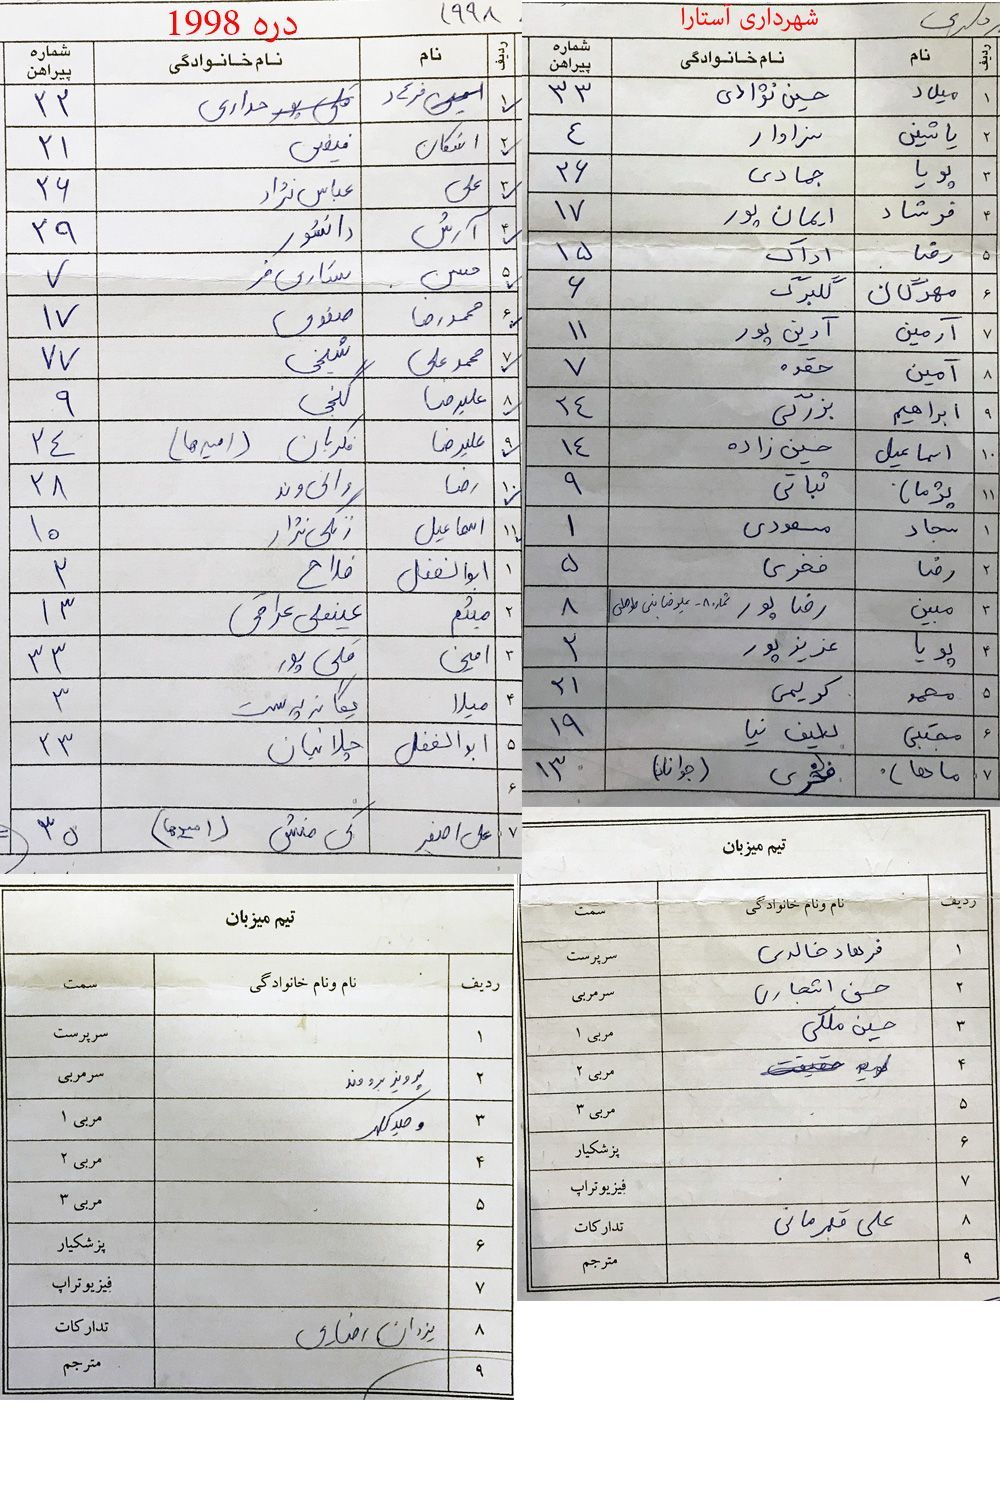 شهرداری آستارا
ردیف نام نام‌خانوادگی شماره پیراهن
۱ میلاد حسین نژادی ۳۳
۲ یاشین سزاوار ۴
۳ پویا جمادی ۲۶
۴ فرشاد ایمان پور ۱۷
۵ رضا اداک ۱۵
۶ مهرگان گلبرگ ۶
۷ آرمین آدین پور ۱۱
۸ آمین حقوه ۷
۹ ابراهیم بزرگی ۲۴
۱۰ اسماعیل حسین زاده ۱۴
۱۱ پژمان ثباتی ۹
۱ سجاد مسعودی ۱
۲ رضا فخری ۵
۳ مبین رضا پور شماره ۸- علیرضا ۸
۴ پویا عزیز پور ۲
۵ محمد کریمی ۲۱
۶ مجتبی لطیف نیا ۱۹
۷ ماهان فخری (جوانان) ۱۳
دره 1998
۱۹۹۸
ردیف نام نام‌خانوادگی شماره پیراهن
۱ فرشاد حداری ۲۲
۲ اشکان فیضی ۲۱
۳ علی عباس نژاد ۲۶
۴ آرش دانشور ۲۹
۵ حسن ستاری فر ۷
۶ محمدرضا صفوی ۱۷
۷ محمد علی شیخی ۷۷
۸ علیرضا گنجی ۹
۹ علیرضا قربان (امیدها) ۲۴
۱۰ رضا والی وند ۲۸
۱۱ اسماعیل زنگی نژاد ۱۰
۱ ابوالفضل فلاح ۲
۲ میثم عینعلی عراقی ۱۳
۳ امین قلی پور ۳۳
۴ میلاد یگانه پرست ۳
۵ ابوالفضل چلانیان ۲۳
۶
۷ علی اصغر کی منش (امیدها) ۳۰
تیم میزبان
ردیف نام ونام خانوادگی سمت
۱ فرهاد خالدی سرپرست
۲ حسن انتجاری سرمربی
۳ حسین ملکی مربی ۱
۴ حقیقت مربی ۲
۵ مربی ۳
۶ پزشکیار
۷ فیزیوتراپ
۸ علی قهرمانی تدارکات
۹ مترجم
تیم میزبان
ردیف نام ونام خانوادگی سمت
۱ سرپرست
۲ پرویز برومند سرمربی
۳ وحید مربی ۱
۴ مربی ۲
۵ مربی ۳
۶ پزشکیار
۷ فیزیوتراپ
۸ یزدان انصاری تدارکات
۹ مترجم